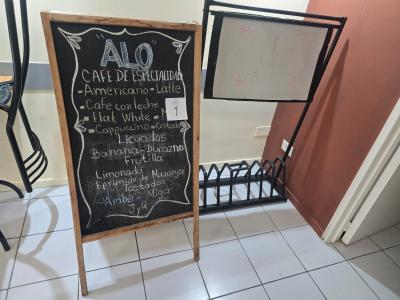 "ALO"
CAFE DE ESPECIALIDAD
- Americano - Latte
- Cafe con leche
- Flat White -
- Cappuccino - Cortado
1
Licuados
Banana - Durazno
Frutilla
Limonada
Exprimido de Naranja
Tostados
Arabe - Miga
JyQ